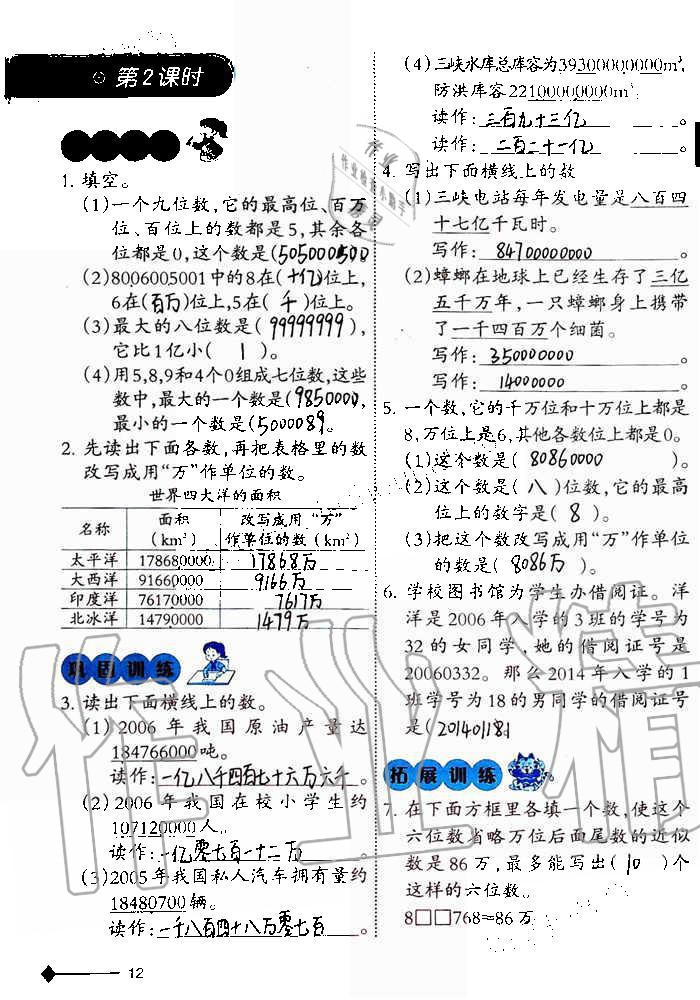 第2课时
1. 填空。
(1)一个九位数,它的最高位、百万
位、百位上的数都是5,其余各
位都是0,这个数是(505000500
(2)8006005001中的8在(十亿)位上,
6在(百万)位上,5在(千)位上。
(3)最大的八位数是(99999999),
它比1亿小(1)。
(4)用5,8,9和4个0组成七位数,这些
数中,最大的一个数是(9850000,
最小的一个数是(5000089。
2. 先读出下面各数,再把表格里的数
改写成用“万”作单位的数。
世界四大洋的面积
名称 面积(km²) 改写成用“万”作单位的数(km²)
太平洋 178680000 17868万
大西洋 91660000 9166万
印度洋 76170000 7617万
北冰洋 14790000 1479万
巩固训练
3. 读出下面横线上的数。
(1) 2006年我国原油产量达
184766000吨。
读作:一亿八千四百七十六万六千。
(2) 2006年我国在校小学生约
107120000人。
读作:一亿零七百一十二万。
(3)2005年我国私人汽车拥有量约
18480700辆。
读作:一千八百四十八万零七百。
12
(4)三峡水库总库容为39300000000m³,
防洪库容22100000000m³。
读作:三百九十三亿。
读作:二百二十一亿。
4. 写出下面横线上的数
(1)三峡电站每年发电量是八百四
十七亿千瓦时。
写作:84700000000。
(2)蟑螂在地球上已经生存了三亿
五千万年,一只蟑螂身上携带
了一千四百万个细菌。
写作:350000000。
写作:14000000。
5. 一个数,它的千万位和十万位上都是
8,万位上是6,其他各数位上都是0。
(1)这个数是(80860000)。
(2)这个数是(八)位数,它的最高
位上的数字是(8)。
(3)把这个数改写成用“万”作单位
的数是(8086万)。
6. 学校图书馆为学生办借阅证。洋
洋是2006年入学的3班的学号为
32的女同学,她的借阅证号是
20060332。那么2014年入学的1
班学号为18的男同学的借阅证号
是(201401181
拓展训练
7. 在下面方框里各填一个数,使这个
六位数省略万位后面尾数的近似
数是86万,最多能写出(10)个
这样的六位数。
8□□768≈86万